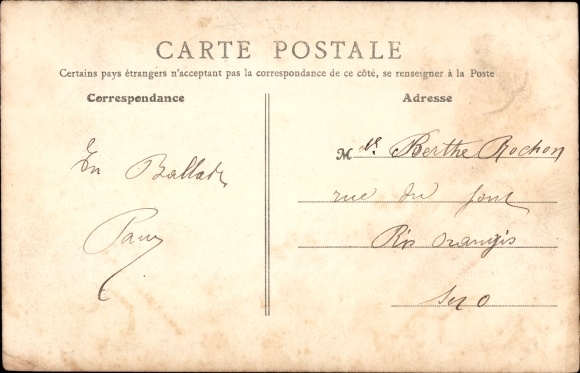 CARTE POSTALE
Certains pays étrangers n'acceptant pas la correspondance de ce côté, se renseigner à la Poste
Correspondance
En Ballade
Adresse
M Berthe Rochon
rue du pont
Ris Orangis